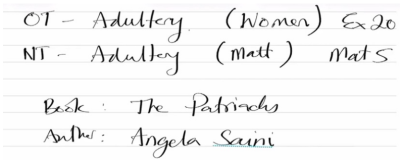 OT - Adultery. (Women) Ex 20
NT - Adultery (Matt) Mat 5
Book : The Patriachs
Author : Angela Saini